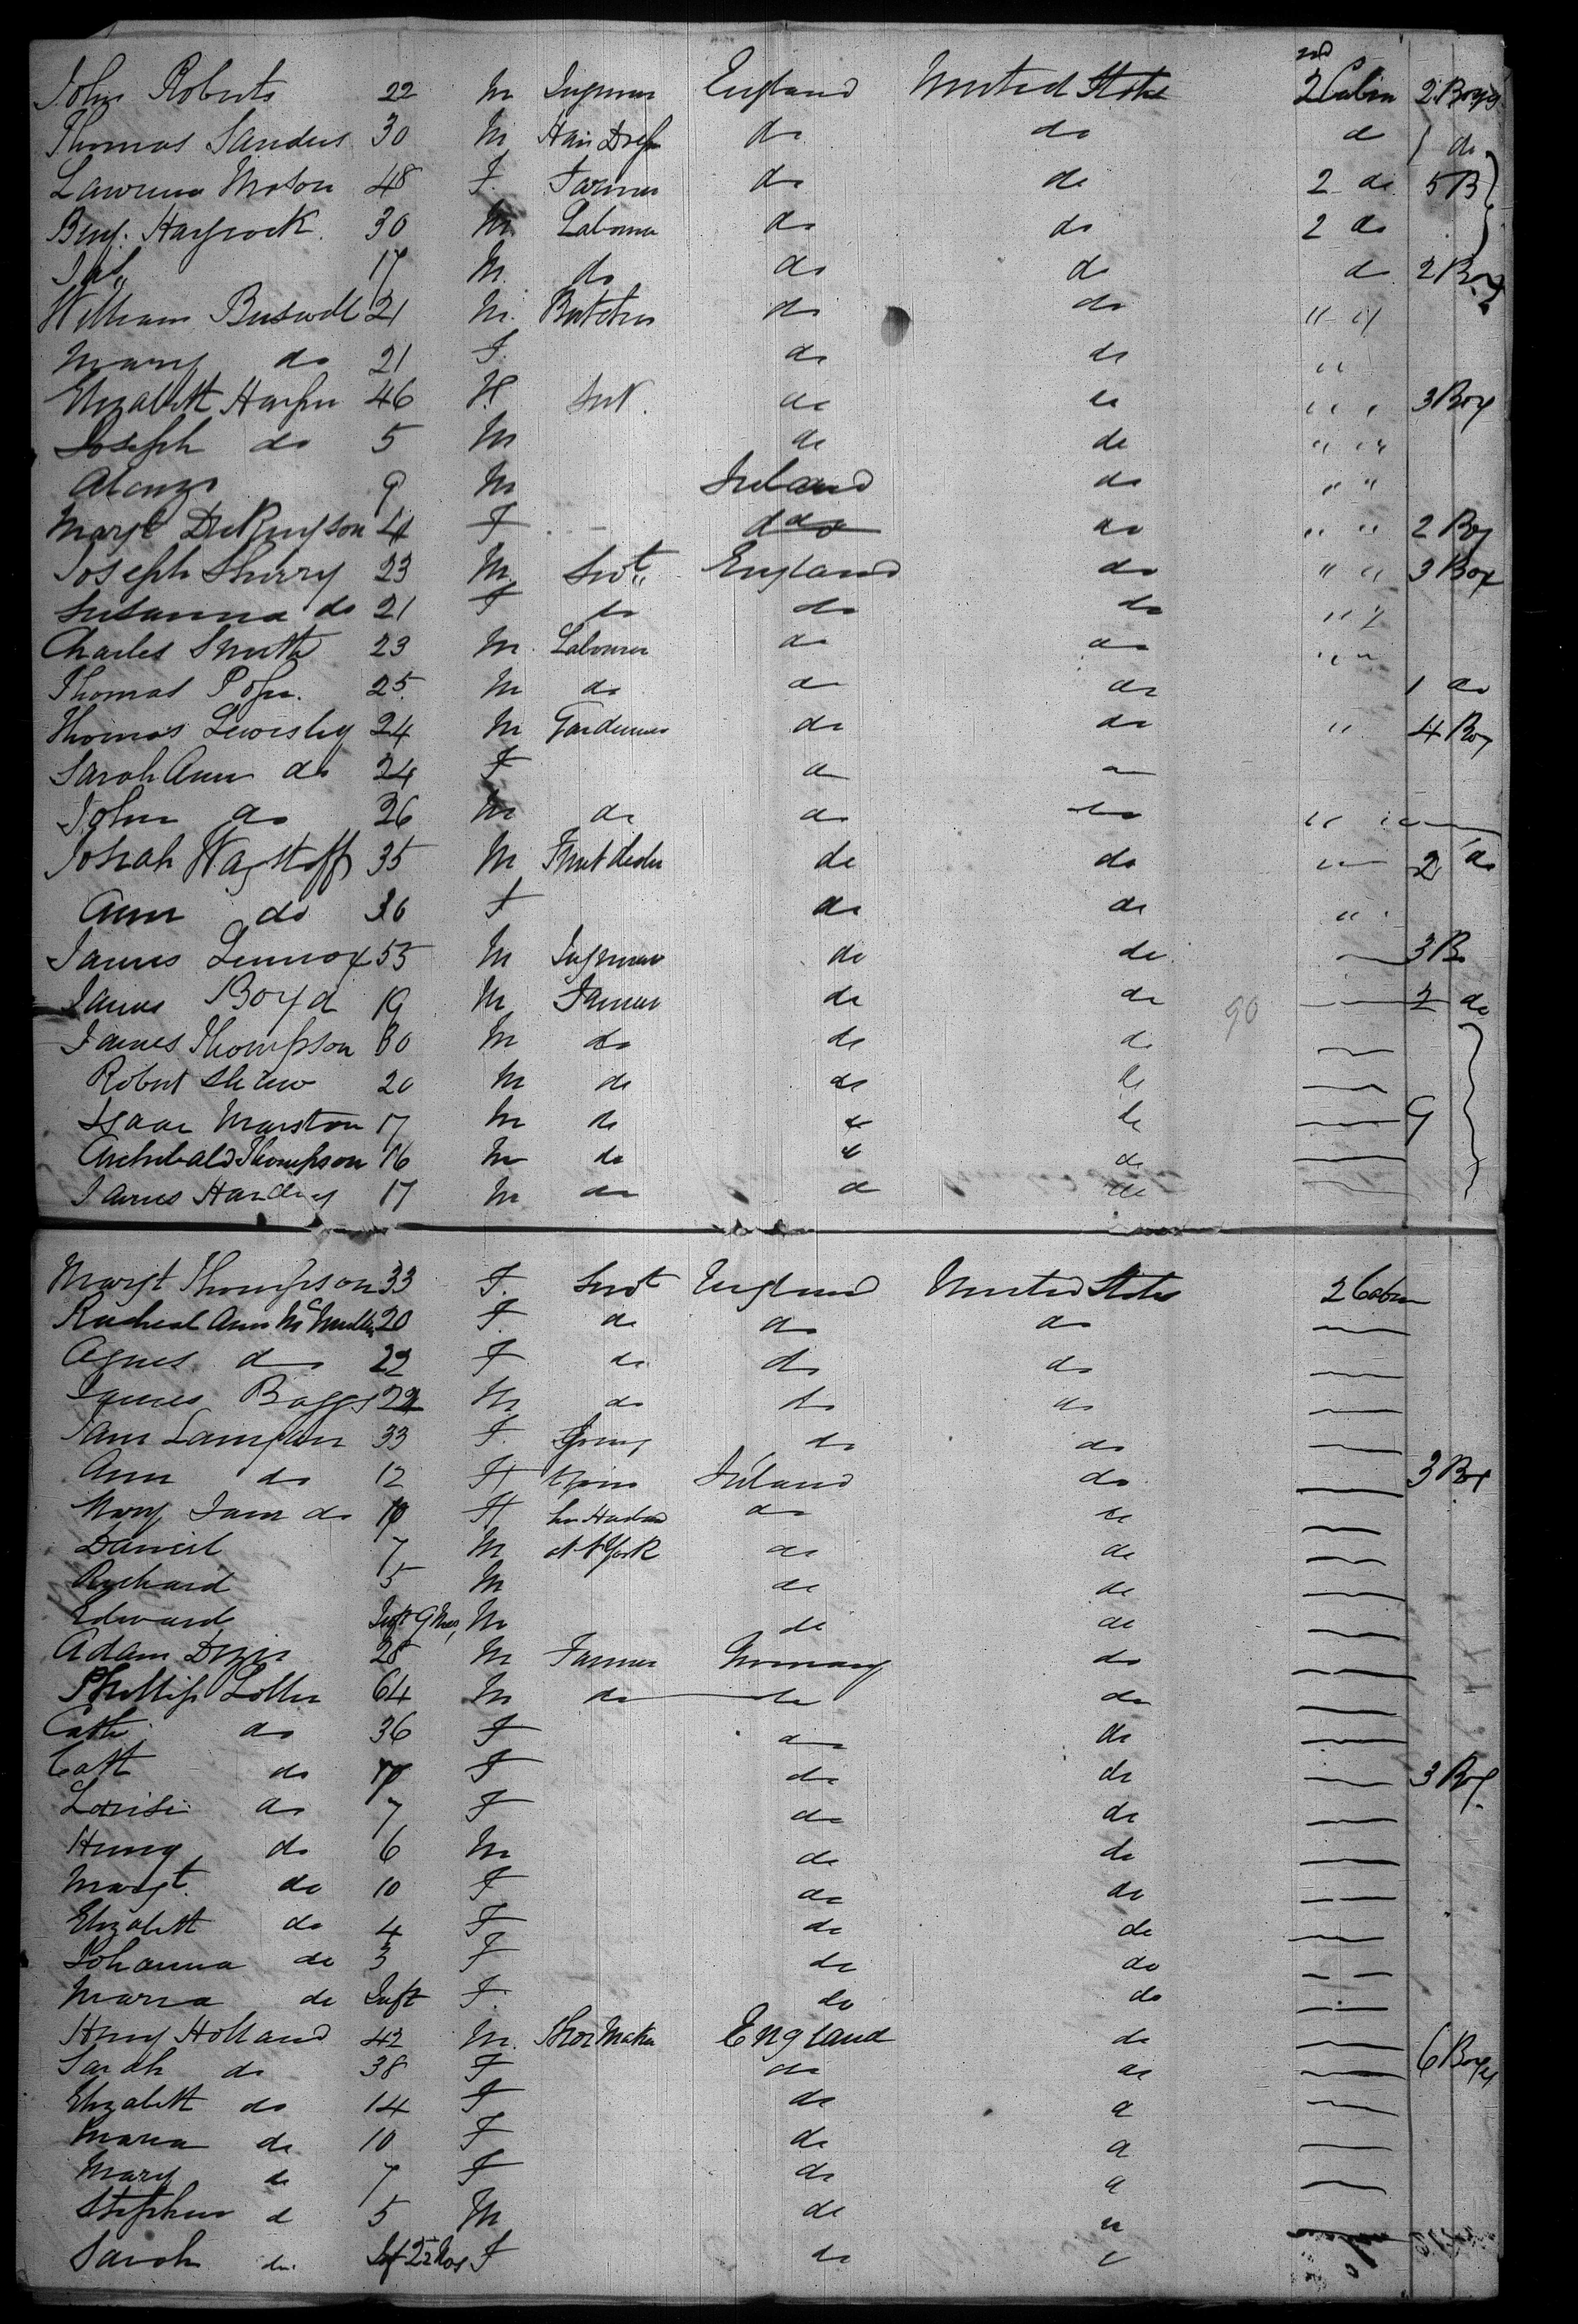 John Roberts 22 M England United States 2nd Cabin 2 Boxes
Thomas Sanders 30 M Hair Dresr do do do 1 do
48 F. Farmer do do 2 do 5 B
Benj. Haycock 30 M Labourer do do 2 do
17 M do do do do 2 Box
William Buswell 21 M. Butcher do do " "
Mary do 21 F. do do "
Elizabeth Harper 46 do do " " 3 Box
Joseph do 5 M do do " "
Alonzo 9 M Ireland do " "
Margt F do " " 2 Box
Joseph Sherry 23 M Servt England do " " 3 Box
Susanna do 21 F do do do " "
Charles Smith 23 M. Labourer do do " "
Thomas Pope. 25 M do do do 1 do
Thomas 24 M Gardener do do " 4 Box
Sarah Ann do 24 F do do
John do 26 M do do do " "
Josiah Wagstaff 35 M do do " 2 do
Ann do 36 F do do "
James Lennox 55 M do do 3 B
James Boyd 19 M Farmer do do 90 2 do
James Thompson 30 M do do do
Robert Shaw 20 M do do do
Isaac Marston 17 M do do do 9
Archibald Thompson 16 M do do do
James Harding 17 M do do do
Margt Thompson 33 F. Servt England United States 2 Cabin
Racheal Ann McMullen 20 F. do do do
Agnes do 22 F do do do
James Boggs 22 M do do do
Jane 33 F. Going do do
Ann do 12 F Ireland do 3 Box
Mary Jane do 10 F her Husband do do
Daniel 7 M at N York do do
Richard 5 M do do
Edward Inft 9 Mos, M do do
Adam 28 M Farmer Germany do
Phillip Loller 64 M do do do
Cath. do 36 F do do
Cath do F do do 3 Box
Louisi do 7 F do do
Henry do 6 M do do
Margt. do 10 F do do
Elizabeth do 4 F do do
Johanna do 3 F do do
Maria do Inft F. do do
Henry Holland 42 M. Shoe Maker England do
Sarah do 38 F do do 6 Boxes
Elizabeth do 14 F do do
Maria do 10 F do do
Mary do 7 F do do
Stephen do 5 M do do
Sarah do F do do